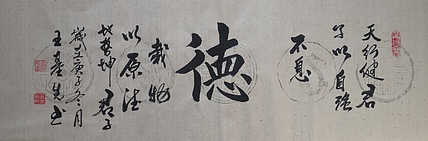 天行健君
子以自強
不息
德
載物
以厚德
地勢坤 君子
歲在庚子冬月